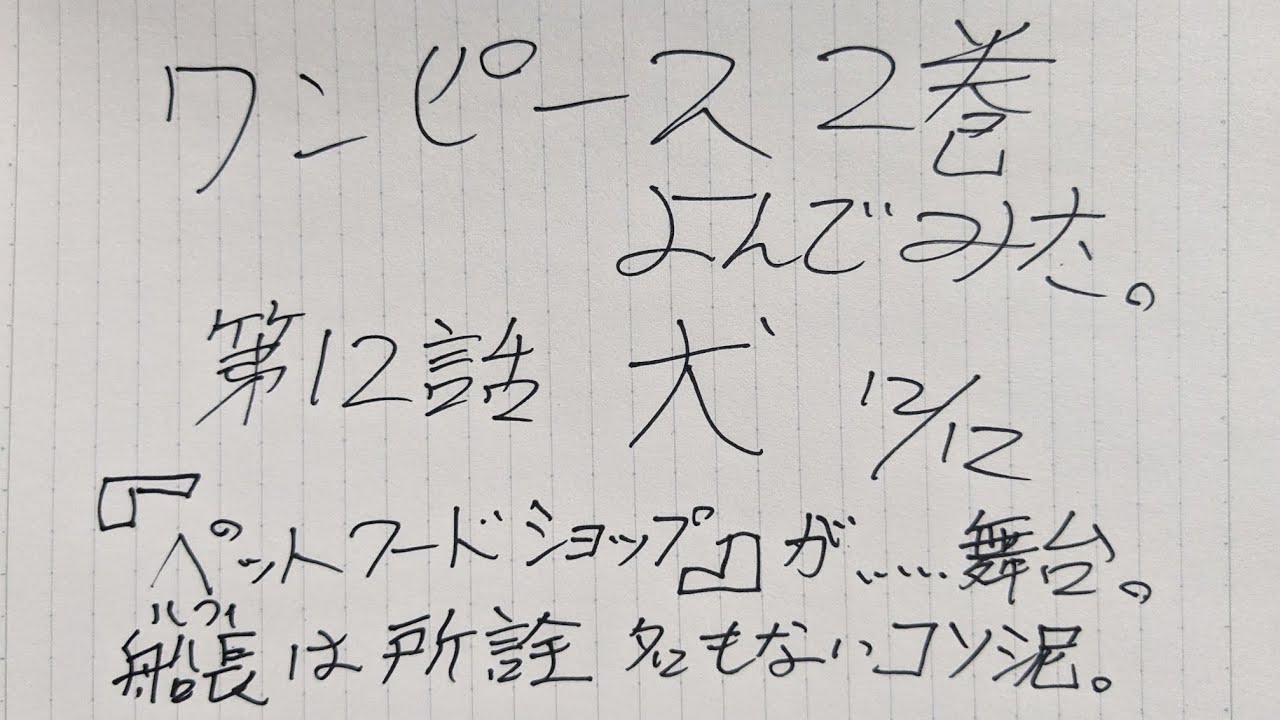 ワンピース2巻
よんでみた。
第12話 犬 12/12
『ペットフードショップ』が……舞台。
ルフィ
船長は所詮名もないコソ泥。